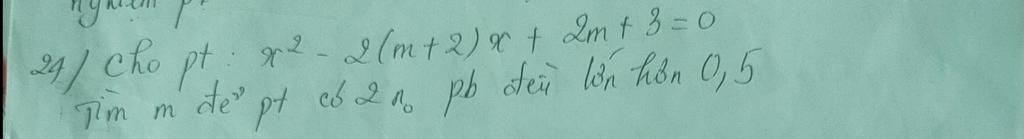 nghiệm p
24/ Cho pt : x² - 2(m+2)x + 2m + 3 = 0
Tìm m để pt có 2 n₀ pb đều lớn hơn 0,5